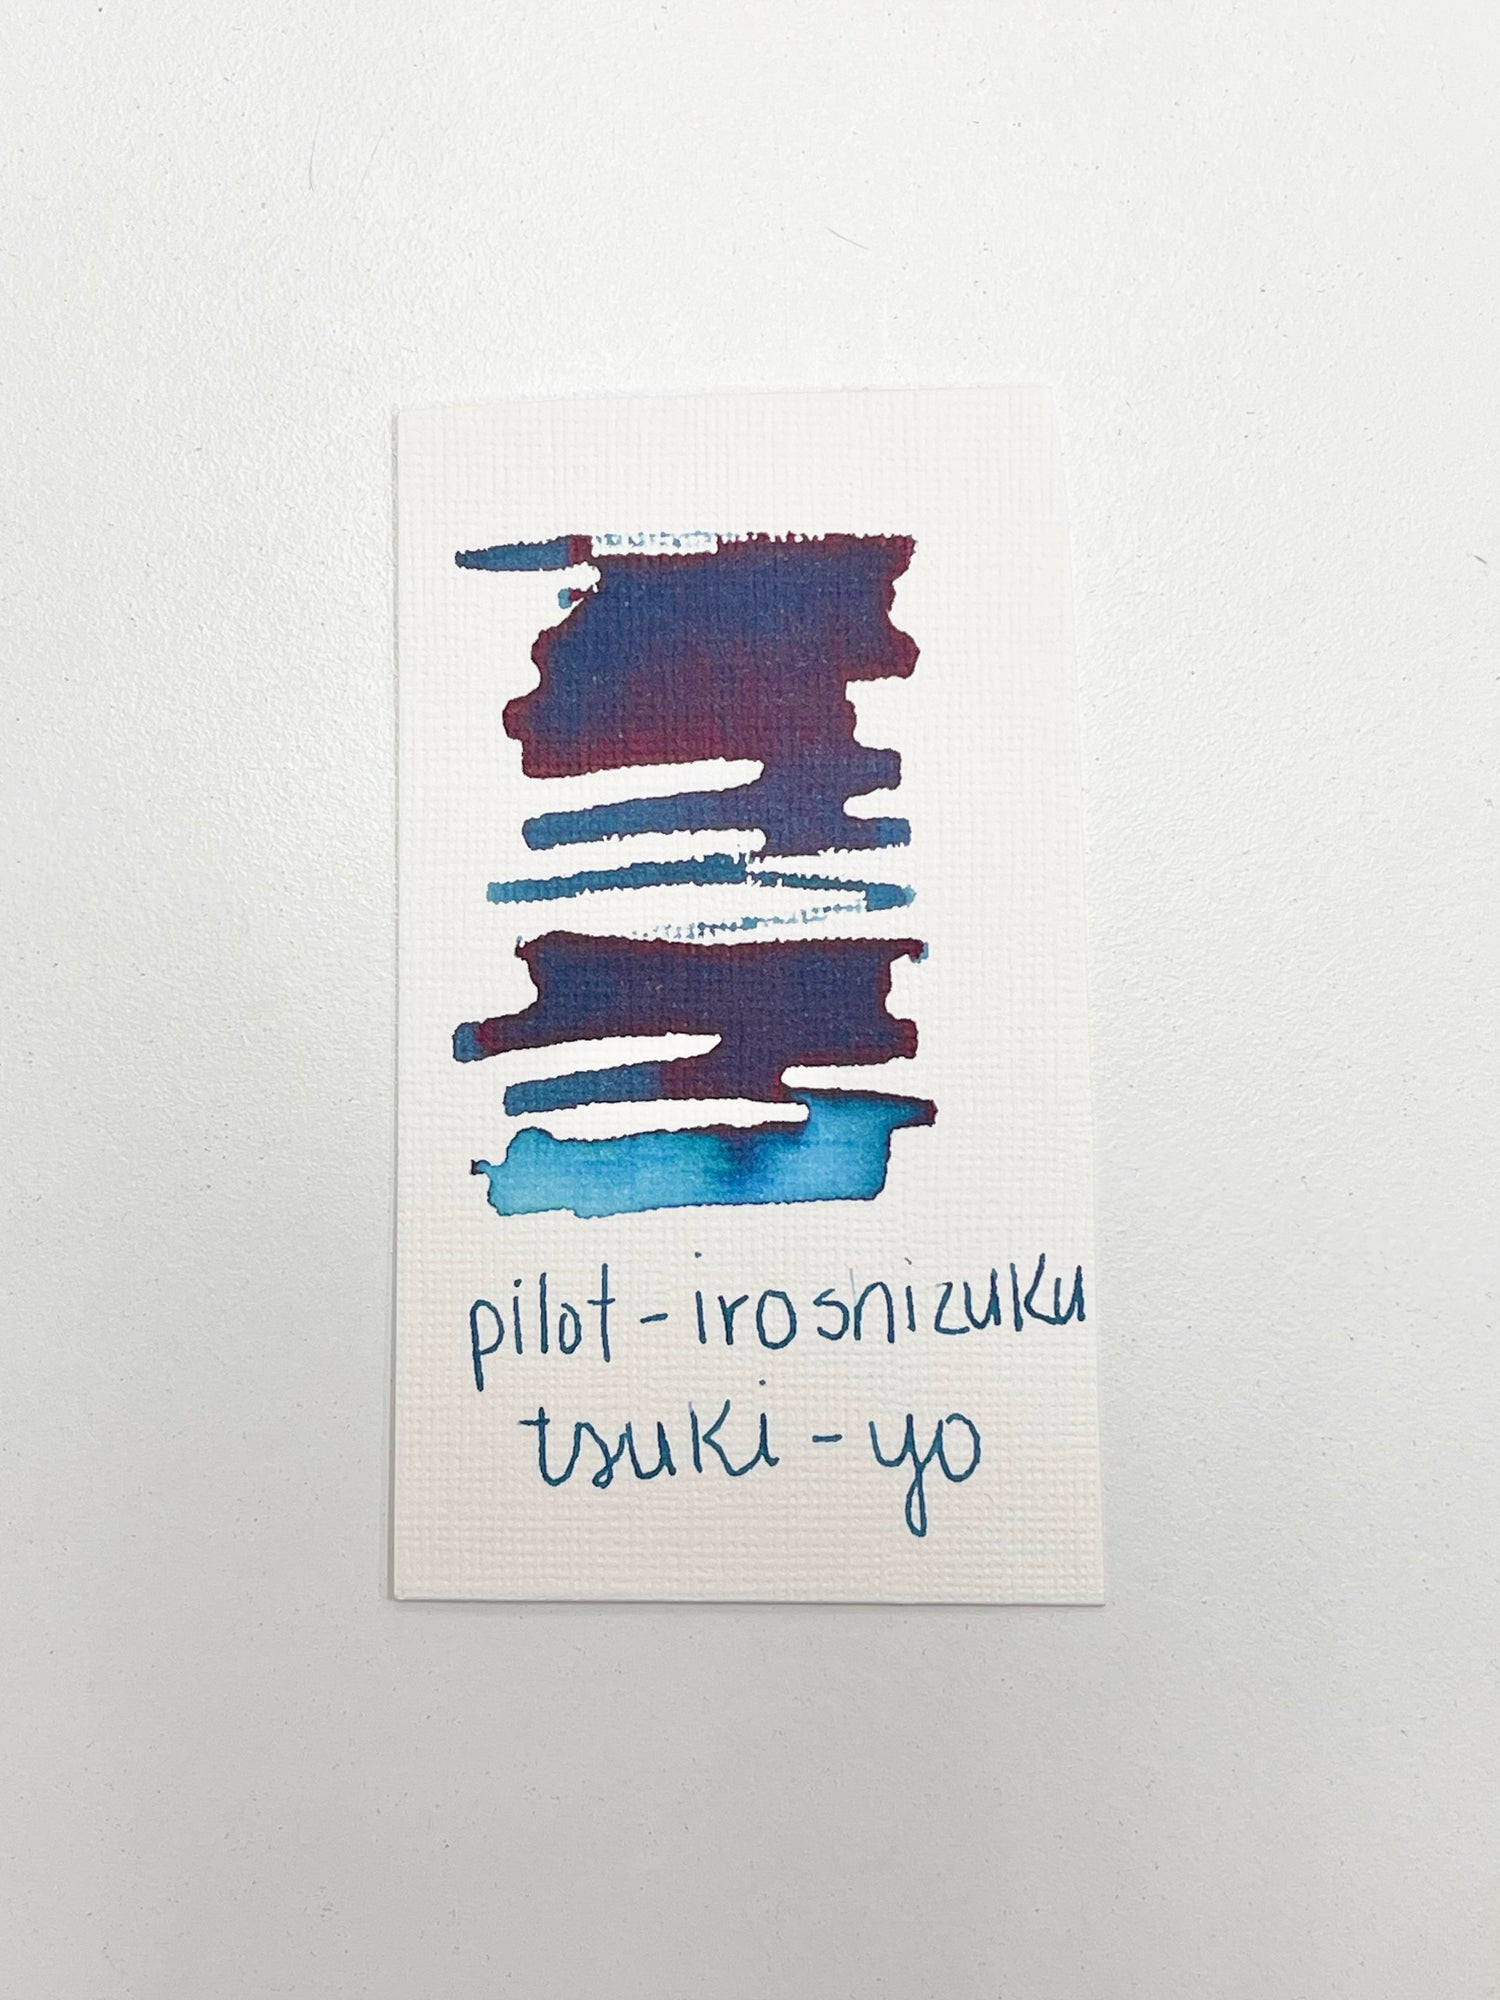 pilot - iroshizuku
tsuki - yo